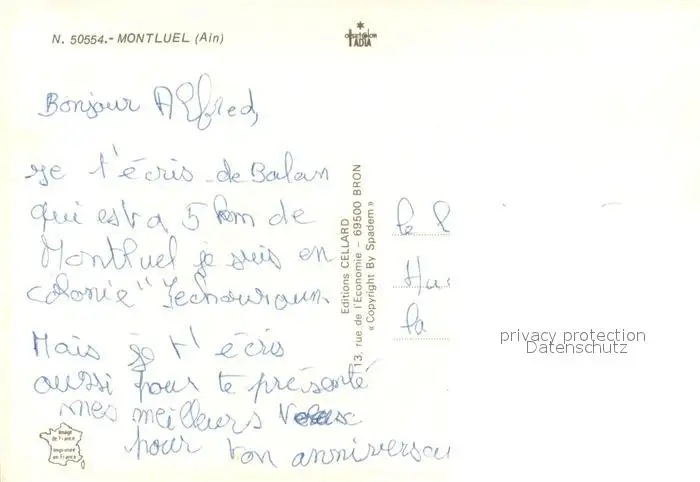 N. 50554.- MONTLUEL (Ain)
Bonjour Alfred,
je t'écris de Balan
qui est a 5 km de
Montluel je suis en
colonie "
Mais je t'écris
aussi pour te présenté
mes meilleurs
pour ton anniversai
Image
de France
imprimée
en France
Editions CELLARD
13. rue de l'Economie - 69500 BRON
« Copyright By Spadem »
le
la
privacy protection
Datenschutz